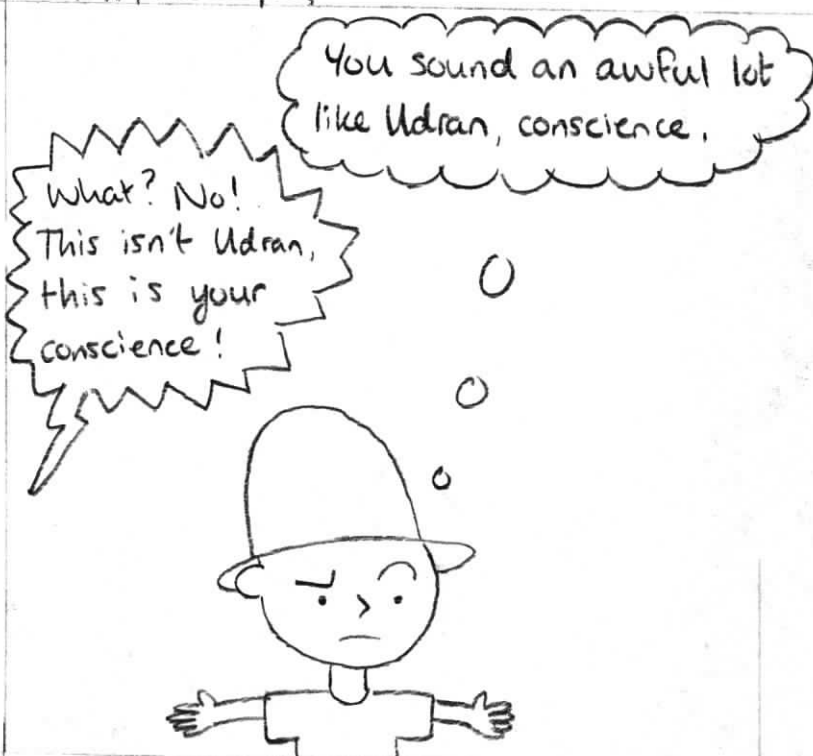 You sound an awful lot
like Udran, conscience.
What? No!
This isn't Udran,
this is your
conscience!